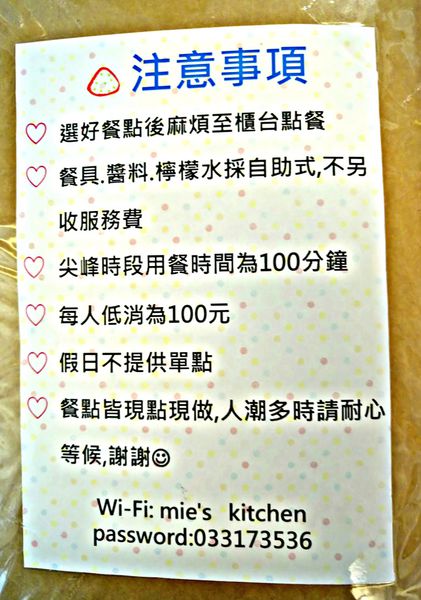 注意事項
♡ 選好餐點後麻煩至櫃台點餐
♡ 餐具.醬料.檸檬水採自助式,不另
收服務費
♡ 尖峰時段用餐時間為100分鐘
♡ 每人低消為100元
♡ 假日不提供單點
♡ 餐點皆現點現做,人潮多時請耐心
等候,謝謝☺
Wi-Fi: mie's kitchen
password:033173536